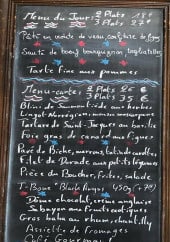 Menu du Jour: 2 Plats
3 Plats
Pâté en croûte de veau, confiture de figue
Sauté de bœuf bourguignon, tagliatelles
Tarte fine aux pommes
Menu-carte: 2 Plats 26 €
3 Plats 35 €
Blins de Saumon
Tartare de Saint-Jacques au basilic
Foie gras de canard aux figues
Pavé de Biche, marrons,
Filet de Dorade aux petits légumes
Pièce du Boucher, Frites, salade
T-Bone Black Angus
Dôme chocolat, crème anglaise
Sabayon aux Fruits exotiques
Gros baba au rhum, chantilly
Assiette de fromages
Café Gourmand